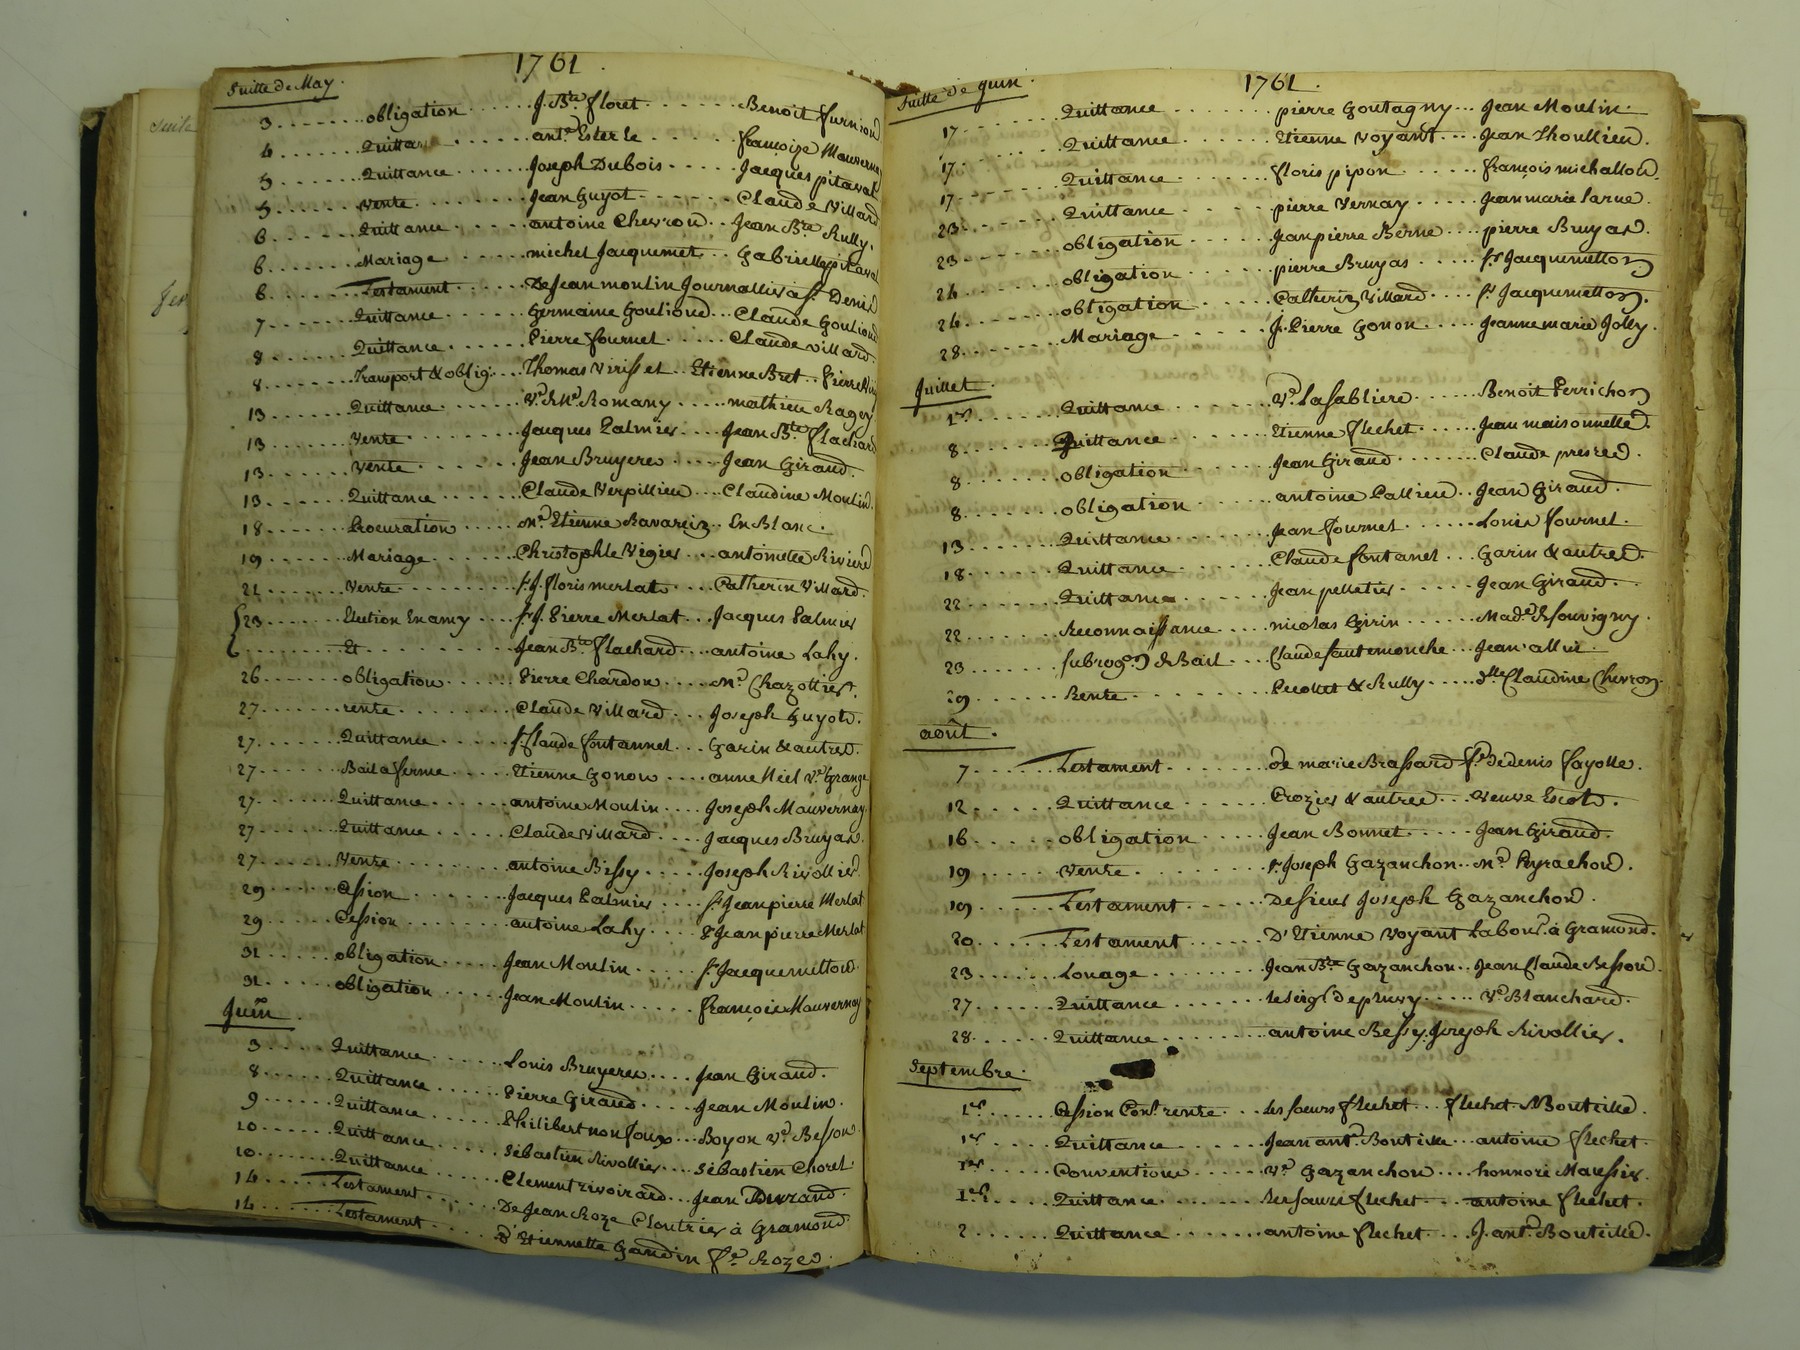 1761.
Suitte de May.
3 obligation J. Bte. floret Benoit furnioud
4 Quittance ante. Esterle françoise Mauvernay
5 Quittance Joseph Dubois Jacques pitaval
5 Vente Jean Guyot Claude Villard
6 Quittance antoine Chevrou Jean Bte. Rully.
6 Mariage michel Jacquemet Gabrielle pitaval
6 Testament De Jean moulin Journallier a St. Denis
7 Quittance Germaine Goulioud Claude Goulioud
8 Quittance Pierre fournel Claude villard.
8 Transport & oblig. Thomas Virisset Etienne Bret Pierre
13 Quittance Romany mathieu Ragey
13 Vente Jacques Palmier Jean Bte. flachard
13 Vente Jean Bruyere Jean Giraud.
13 Quittance Claude Verpillieu Claudine Moulin.
18 Procuration Me. Etienne Ravarriz En Blanc.
19 Mariage Christophle Vigier antoinette Riviere
21 Vente Sr. J. floris merlat Catherin Villard.
23 Election En amy Sr. J. Pierre Merlat Jacques Palmier
Et Jean Bte. flachard antoine Lahy.
26 obligation Pierre Chardon Mr. Chazottier.
27 rente Claude Villard Joseph Guyot.
27 Quittance Sr. Claude fontannel Garin & autres.
27 Bail a ferme Etienne Gonou anne Neel Ve. Grange
27 Quittance antoine Moulin Joseph Mauvernay.
27 Quittance Claude Villard Jacques Bruyas.
27 Vente antoine Bissy Joseph Rivollier.
29 Cession Jacques Palmier Sr. Jean pierre Merlat
29 Cession antoine Lahy Sr. Jean pierre Merlat
31 obligation Jean Moulin Sr. Jacquemettou.
31 obligation Jean Moulin françois Mauvernay
Juin.
3 Quittance Louis Bruyeres Jean Giraud.
8 Quittance Pierre Giraud Jean Moulin.
9 Quittance Philibert Boyon Ve. Besson
10 Quittance Sébastien Rivollier Sébastien Chorel
10 Quittance Clement rivoirard Jean Durand.
14 Testament De Jean Roze Cloutrier à Gramond
14 Testament D'Etiennette Gaudin fe. Roze.
1761.
Suitte de Juin
17 Quittance pierre Goutagny Jean Moulin.
17 Quittance Etienne Voyant Jean Thoullieu.
17 Quittance floris pipon françois michallou.
17 Quittance pierre Vernay Jean marie Larue.
23 obligation Jean pierre Berne pierre Bruyas.
23 obligation pierre Bruyas Sr. Jacquemetton
24 obligation Catherin Villard Sr. Jacquemetton.
24
28 Mariage J. Pierre Gonon Jeanne marie Jolly.
Juillet.
1er. Quittance Ve. Lasabliere Benoit Perrichon
8 Quittance Etienne flechet Jean maisonnette.
8 obligation Jean Giraud Claude
8 obligation antoine Pallieu Jean Giraud.
13 Quittance Jean fournel Louis fournel.
18 Quittance Claude fontanel Garin & autres.
22 Quittance Jean pelletier Jean Giraud.
22 Reconnaissance nicolas Girin Made. de souvigny.
23 Subrogon. de Bail Claude fautemonche Jean allier.
29 Rente Pecollet & Rully dlle. Claudine Chevron.
août.
7 Testament de marie Brassard fe. de denis fayolle.
12 Quittance Crozier & autres Veuve Escot.
16 obligation Jean Bonnet Jean Giraud.
19 Vente Sr. Joseph Gazanchon Me. Peyrachon.
19 Testament De sieur Joseph Gazanchon.
20 Testament D'Etienne Voyant Labour. à Gramond.
23 Louage Jean Bte. Gazanchon Jean Claude Besson.
27 Quittance le seigr. Ve. Blanchard.
28 Quittance antoine Bessy. Joseph Rivollier.
Septembre.
1er. Cession Cont. rente les soeurs flechet flechet & Bouteille.
1er Quittance Jean ant. Bouteille antoine flechet.
1er Convention Ve. Gazanchon honnoré Massis.
1er. Quittance les soeurs flechet antoine flechet.
2 Quittance antoine flechet J. ant. Bouteille.